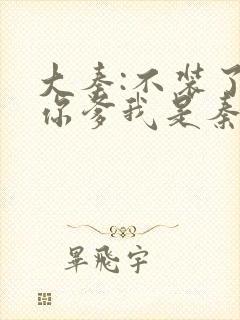 大秦:不装了
你爹我是秦
畢飛宇